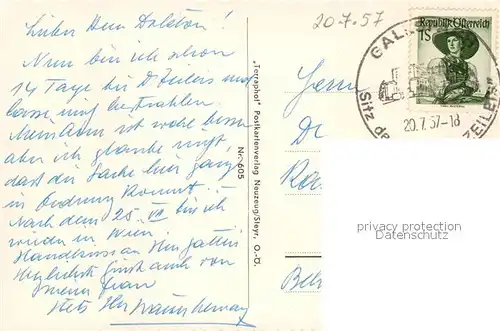 Lieber Herr Doktor!
Nun bin ich schon
14 Tage bei Dr Zeileis und
lasse mich bestrahlen.
Mein Arm ist wohl besser
aber ich glaube nicht,
dass die Sache hier ganz
in Ordnung kommt.
Nach dem 25. VII bin ich
wieder in Wien.
Handkuss an Ihre Gattin
Herzlichste Grüsse auch von
meiner Frau
Stets Ihr
"Terraphot" Postkartenverlag Neuzeug/Steyr, O.-Ö.
Nr. 605
20.7.57
Republik Österreich
1 S
GAL
Sitz de
ZEILEIS"
20.7.57-18
Herrn
privacy protection
Datenschutz